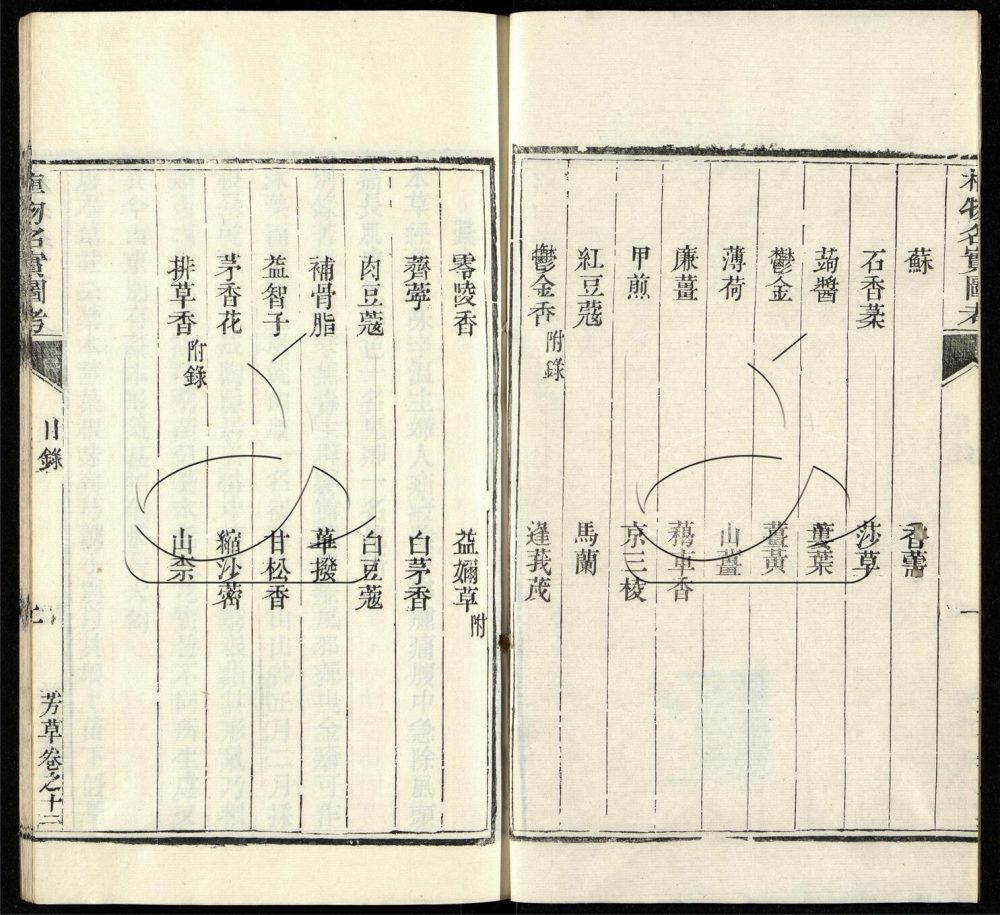 植物名實圖考
蘇　香薷
石香葇　莎草
蒟醬　蔞葉
鬱金　薑黃
薄荷　山薑
廉薑　藒車香
甲煎　京三棱
紅豆蔻　馬蘭
鬱金香附錄　蓬莪茂
零陵香　益嬭草附
薺薴　白茅香
肉豆蔻　白豆蔻
補骨脂　蓽撥
益智子　甘松香
茅香花　縮沙蔤
排草香附錄　山柰
植物名實圖考　目錄　芳草卷之十二